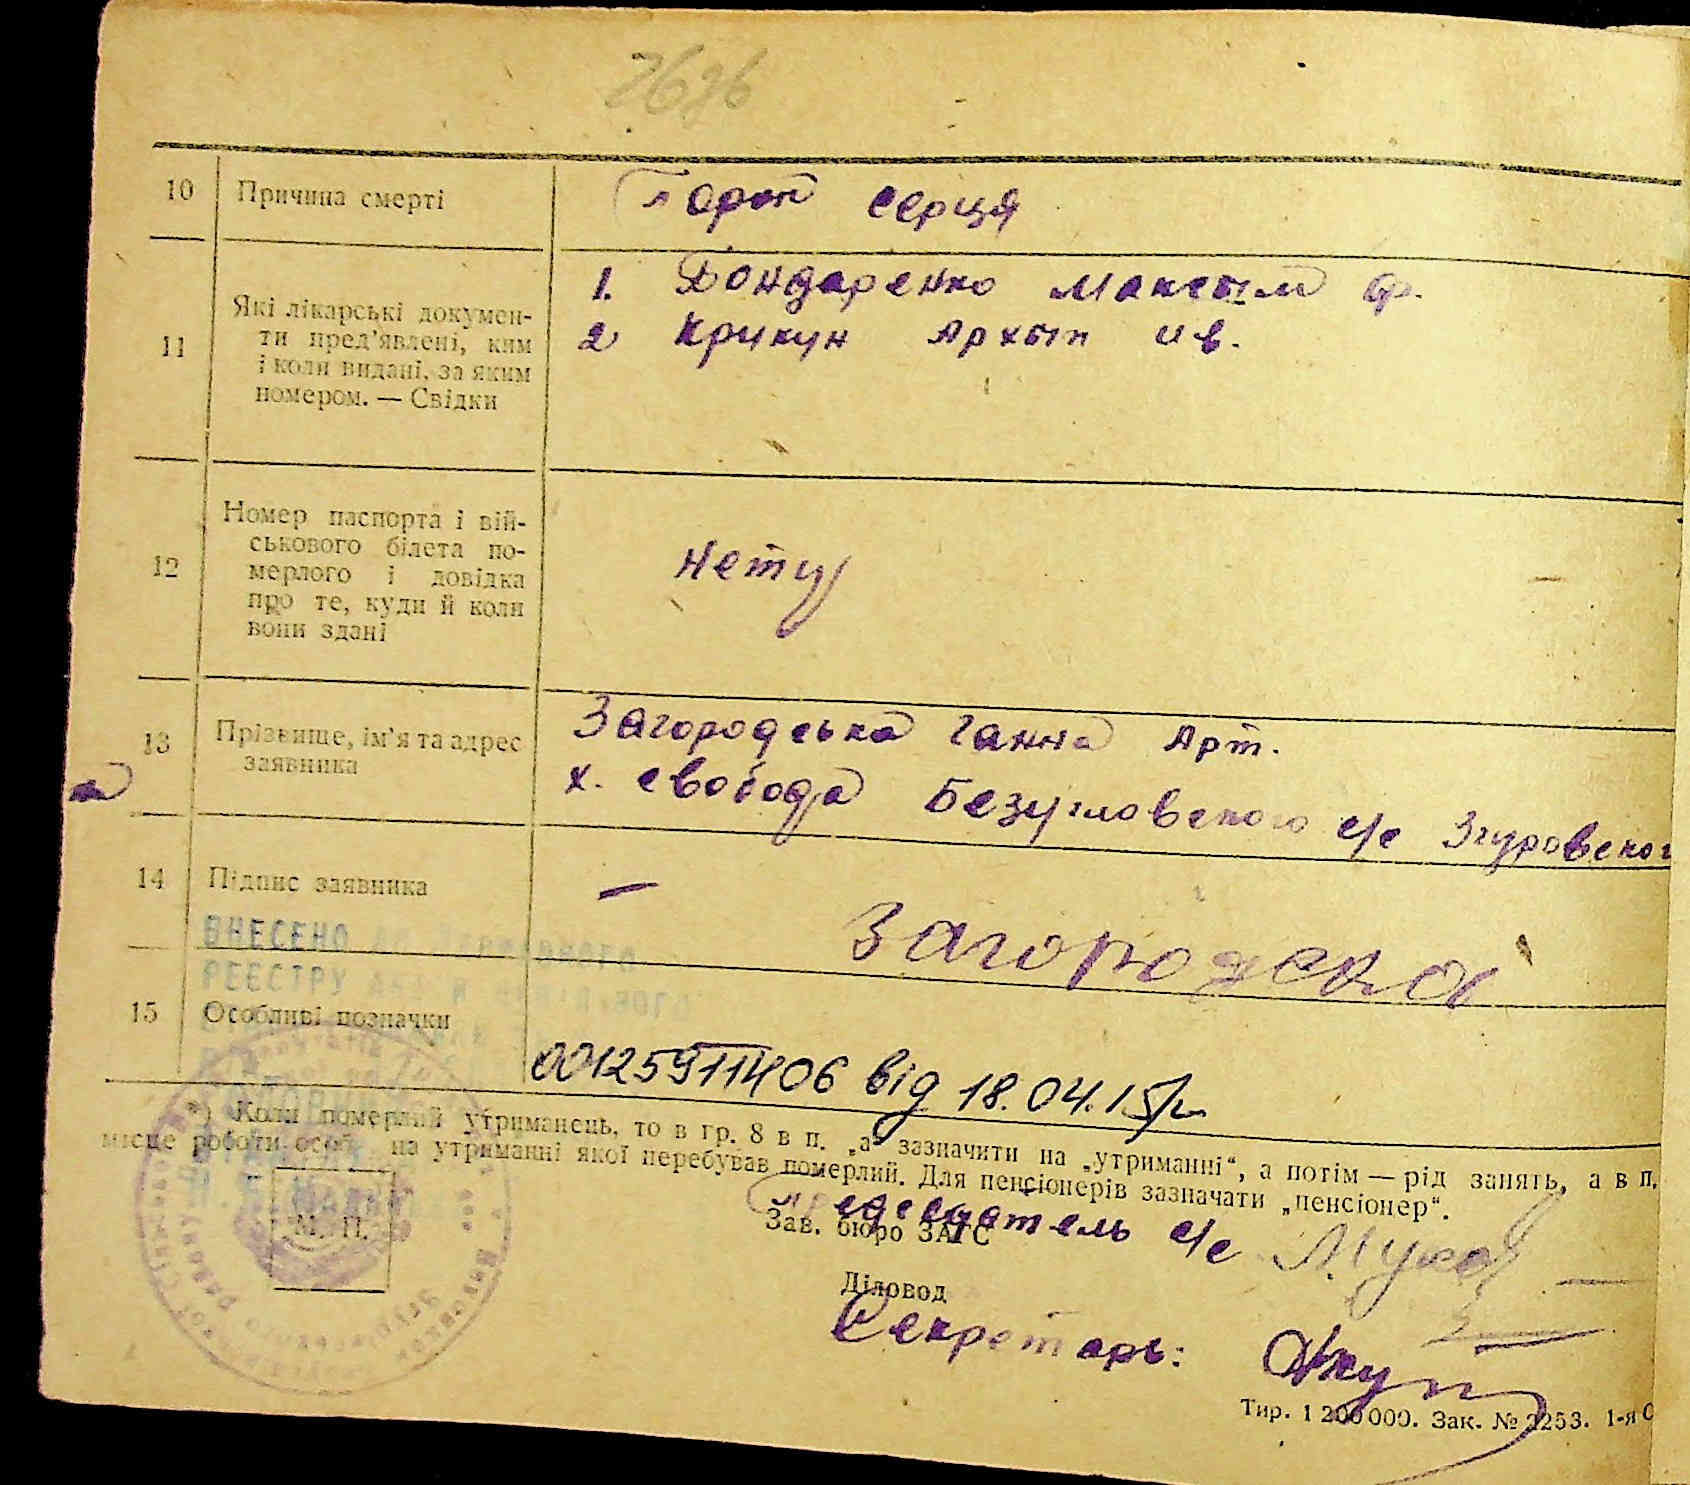 10 Причина смерті
серця
11 Які лікарські докумен-
ти пред’явлені, ким
і коли видані, за яким
номером. — Свідки
1. Бондаренко Максым Ф.
2 Крикун Архып Ив.
12 Номер паспорта і вій-
ськового білета по-
мерлого і довідка
про те, куди й коли
вони здані
нету
13 Прізвище, ім’я та адрес
заявника
Загородська Ганна Арт.
х. свобода Безугловского с/с Згуровског
14 Підпис заявника
—
ВНЕСЕНО ДО ДЕРЖАВНОГО
РЕЄСТРУ
15 Особливі позначки
00125911406 від 18.04.15р
*) Коли померлий утриманець, то в гр. 8 в п. „а“ зазначити на „утриманні“, а потім — рід занять, а в п.
місце роботи особ на утриманні якої перебував померлий. Для пенсіонерів зазначати „пенсіонер“.
Председатель с/с
Зав. бюро ЗАГС
М. П.
Діловод
Секретарь:
Тир. 1 200 000. Зак. № 2253. 1-я